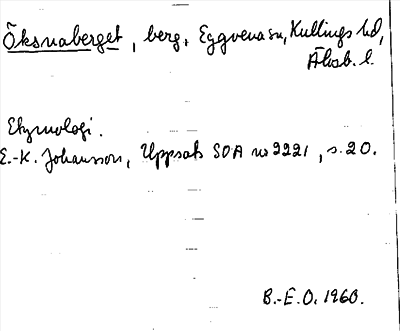 Öksnaberget, berg, Eggvena sn, Kullings hd,
Älvsb. l.
Etymologi.
E.-K. Johansson, Uppsats SOA nr 2221, s. 20.
B.-E. O. 1960.